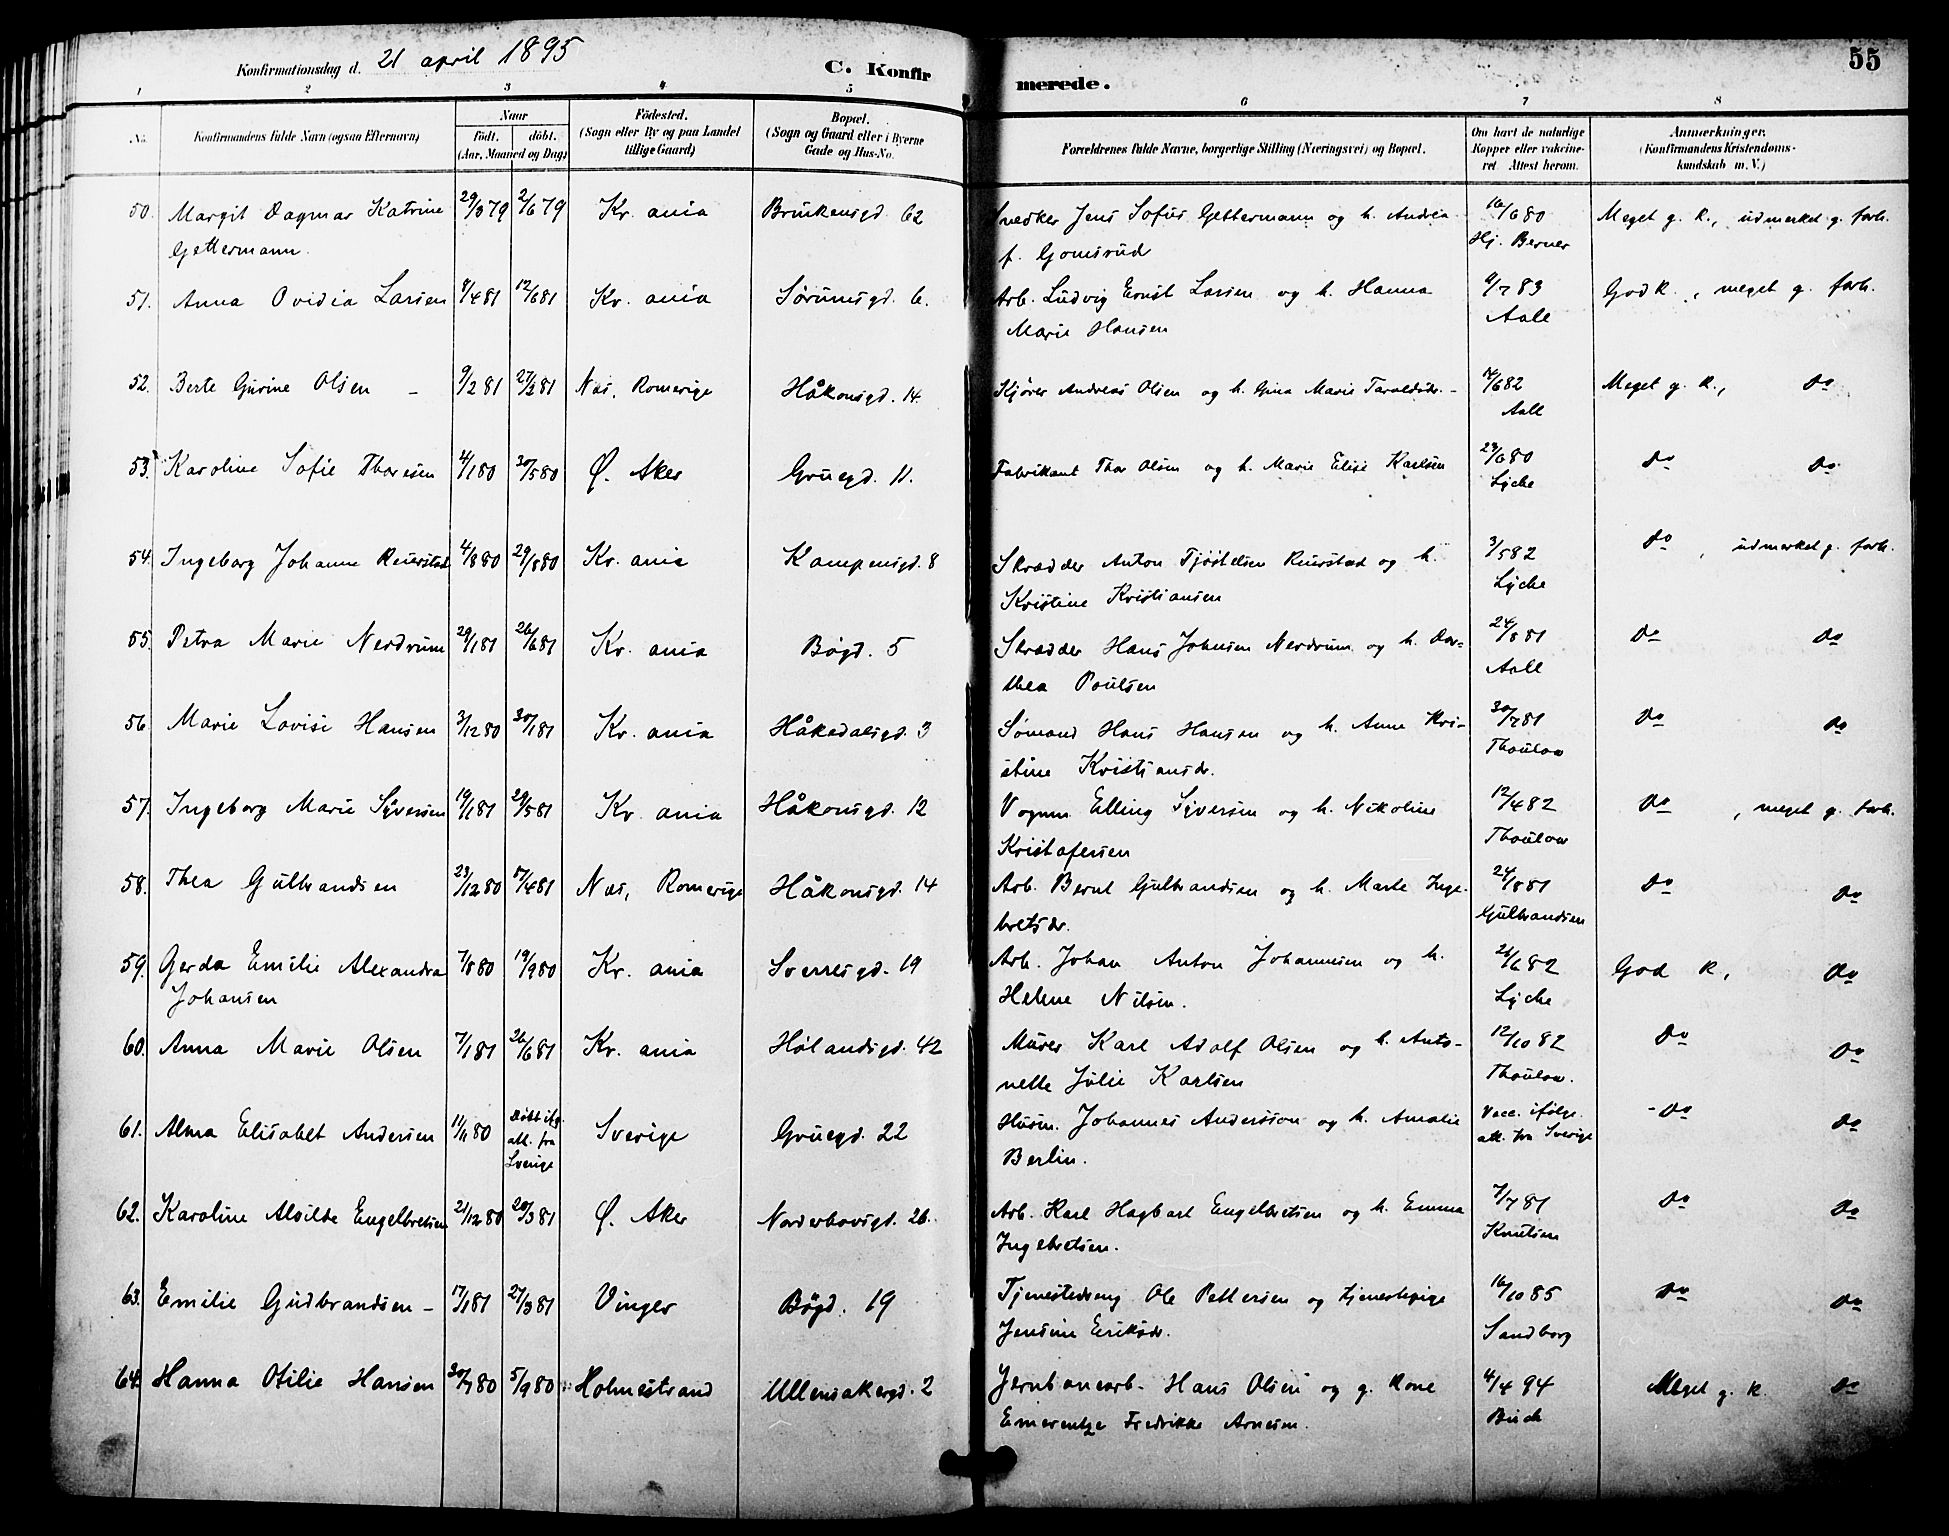 Konfirmationsdag d. 21 april 1895
C. Konfir
merede.
55
1 2 3 4 5 6 7 8
No.
Konfirmandens fulde Navn (ogsaa Efternavn)
Naar
födt. döbt.
(Aar, Maaned og Dag)
Födested.
(Sogn eller By og paa Landet
tillige Gaard)
Bopæl.
(Sogn og Gaard eller i Byerne
Gade og Hus-No.
Forældrenes fulde Navne, borgerlige Stilling (Næringsvei) og Bopæl.
Om havt de naturlige
Kopper eller vakcine-
ret. Attest herom.
Anmærkninger.
(Konfirmandens Kristendoms-
kundskab m. V.)
50. Margit Dagmar Katrine 29/3 79 2/6 79 Kr. ania Brinkensgd. 62 Snedker Jens Sofus Gettermann og h. Andrea 16/6 80 Meget g. k., udmerket g. forh.
Gettermann. f. Gomsrud Hj. Berner
51. Anna Ovidia Larsen 8/4 81 12/6 81 Kr. ania Sørumsgd. 6. Arb. Ludvig Ernst Larsen og h. Hanna 6/7 83 God k., meget g. forh.
Marie Hansen Aall
52. Berte Gurine Olsen - 9/2 81 27/3 81 Næs, Romerige Håkonsgd. 14. Kjører Andreas Olsen og h. Gina Marie Taraldsdr. - 14/6 82 Meget g. k., do
Aall
53. Karoline Sofie Thoresen 4/1 80 30/5 80 Ø. Aker Gruegd. 11. Fabrikant Thor Olsen og h. Marie Elise Karlsen 29/6 80 do do
Lyche
54. Ingeborg Johanne Reierstad 4/8 80 29/8 80 Kr. ania Kampensgd. 8 Skrædder Anton Tjøstelsen Reierstad og h. 3/5 82 do, udmerket g. forh.
Kristine Kristiansen Lyche
55. Petra Marie Nerdrum 29/1 81 26/6 81 Kr. ania Bøgd. 5 Skrædder Hans Johnsen Nerdrum og h. Dor- 24/8 81 do do
thea Poulsen Aall
56. Marie Lovise Hansen 3/12 80 30/1 81 Kr. ania Håkedalsgd. 3 Sømand Hans Hansen og h. Anne Kri- 30/7 81 do do
stine Kristiansdr. Thoulow
57. Ingeborg Marie Syversen 19/1 81 29/5 81 Kr. ania Håkonsgd. 12 Vognm. Elling Syversen og h. Nikoline 12/4 82 do, meget g. forh.
Kristofersen Thoulow
58. Thea Gulbrandsen 23/12 80 17/4 81 Næs, Romerige Håkonsgd. 14 Arb. Bernt Gulbrandsen og h. Marte Inge- 24/8 81 do do
bretsdr. Gulbrandsen
59. Gerda Emilie Alexandra 7/8 80 19/9 80 Kr. ania Sverresgd. 19 Arb. Johan Anton Johannesen og h. 26/6 82 God k., do
Johansen Helene Nilsen. Lyche
60. Anna Marie Olsen 7/1 81 26/6 81 Kr. ania Hølandsgd. 42 Murer Karl Adolf Olsen og h. Anto- 12/10 82 do do
nette Julie Karlsen Thoulow.
61. Alma Elisabet Andersen 11/11 80 Døbt ifg. Sverige Gruegd. 22 Husm. Johannes Andersson og h. Amalie Vacc. ifølge - do do
att. fra Berlin. att. fra Sverige
Sverige
62. Karoline Alvilde Engelbretsen 21/12 80 20/3 81 Ø. Aker Norderhovsgd. 26. Arb. Karl Hagbart Engelbretsen og h. Emma 7/7 81 do do
Ingebretsen. Knutsen
63. Emilie Gudbrandsen - 17/1 81 27/3 81 Vinger Bøgd. 19 Tjenestedreng Ole Pettersen og tjenestepige 16/10 85 do do
Jensine Eriksdr. Sandborg
64. Hanna Otilie Hansen 30/7 80 5/9 80 Holmestrand Ullensakergd. 2 Jernbanearb. Hans Olsen og g. kone 4/4 94 Meget g. k. do
Emerentze Fredrikke Arnesen. Buch